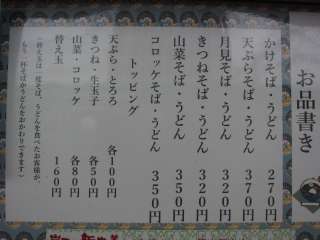 お品書き
かけそば・うどん 270円
天ぷらそば・うどん 370円
月見そば・うどん 320円
きつねそば・うどん 320円
山菜そば・うどん 350円
コロッケそば・うどん 350円
トッピング
天ぷら・とろろ 各100円
きつね・生玉子 各50円
山菜・コロッケ 各80円
替え玉 160円
(替え玉は、一度そば、うどんを食べたお客様が、
もう一杯そばかうどんをおかわりできます)